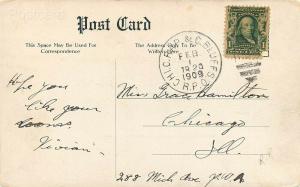 Post Card
This Space May Be Used For
Correspondence
The Address Only To Be
Written Here
CHIC. & C. BLUFFS
FEB
1
1909
R.P.O.
Hope you
like your
Vivian
Miss Grace Hamilton
Chicago
Ill.
288 Mich Ave